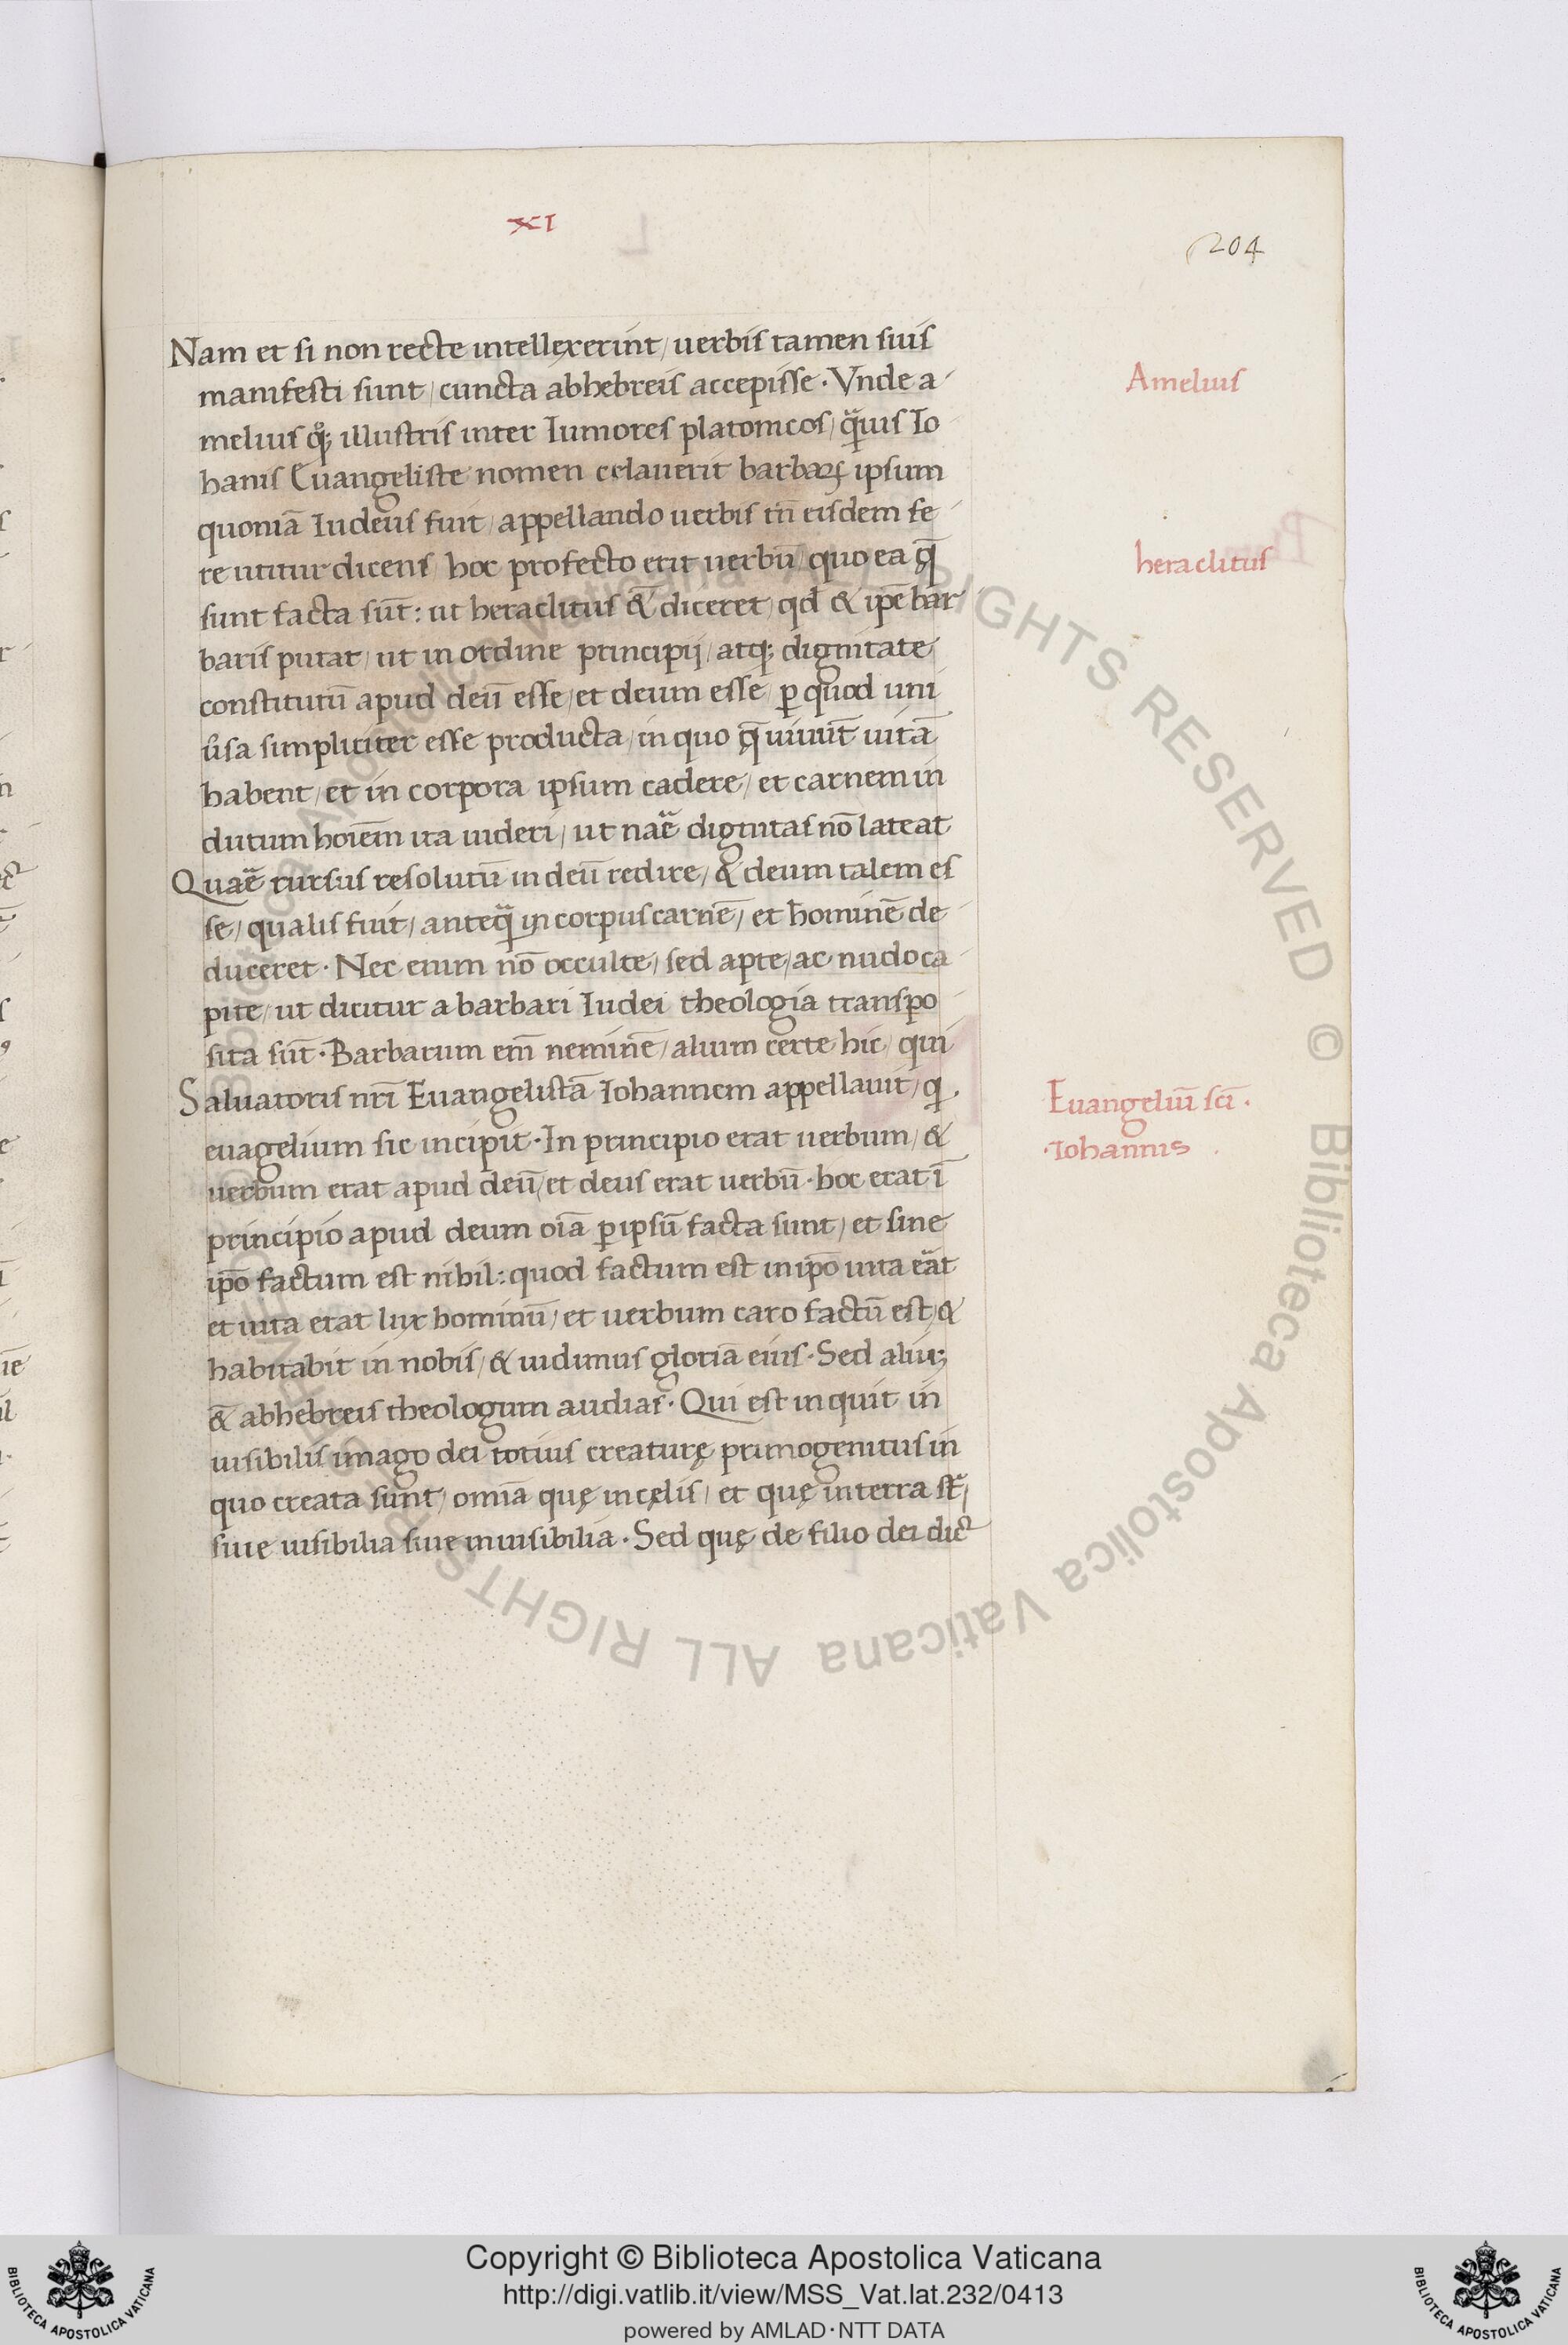 XI
204
Nam et si non recte intellexerint/ uerbis tamen suis
manifesti sunt/ cuncta abhebreis accepisse. Vnde a
melius qͦꝫ illustris inter Iuniores platonicos/ q̃uis Io
hanis Euangeliste nomen celauerit barbaꝝ ipsum
quoniã Iudeus fuit/ appellando uerbis tñ eisdem fe
re utitur dicens/ hoc profecto erit uerbũ/ quo ea q̃
sunt facta sũt: ut heraclitus & diceret/ qđ & ip̃e bar
baris putat/ ut in ordine principij/ atqꝫ dignitate
constitutũ apud deũ esse/ et deum esse/ ꝑ quod uni
ũsa simpliciter esse producta/ in quo q̃ uiuũt uitã
habent/ et in corpora ipsum cadere/ et carnem in
dutum hoiẽm ita uideri/ ut naẽ dignitas nõ lateat
Quaẽ rursus resolutũ in deũ redire/ & deum talem es
se/ qualis fuit/ anteq̃ in corpus carnẽ/ et hominẽ de
duceret. Nec enim nõ occulte/ sed apte/ ac nudo ca
pite/ ut dicitur a barbari Iudei theologia transpo
sita sũt. Barbarum em̃ neminẽ/ alium certe hic/ qui
Saluatoris nr̃i Euangelistã Iohannem appellauit/ qꝫ
euagelium sic incipit. In principio erat uerbum/ &
uerbum erat apud deũ/ et deus erat uerbũ. hoc erat ĩ
principio apud deum oĩa ꝑ ipsũ facta sunt/ et sine
ip̃o factum est nihil: quod factum est in ip̃o uita eãt
et uita erat lux hominũ/ et uerbum caro factũ est/ &
habitabit in nobis/ & uidimus gloriã eius. Sed aliũꝫ
& abhebreis theologum audias. Qui est inquit in
uisibilis imago dei totius creaturę primogenitus in
quo creata sunt/ omĩa quę in cęlis/ et quę in terra st̃/
siue uisibilia siue inuisibilia. Sed quę de filio dei dic̃
Amelius
heraclitus
Euangeliũ sc̃i.
Iohannis
Copyright © Biblioteca Apostolica Vaticana
http://digi.vatlib.it/view/MSS_Vat.lat.232/0413
powered by AMLAD·NTT DATA
BIBLIOTECA APOSTOLICA VATICANA
BIBLIOTECA APOSTOLICA VATICANA
© Biblioteca Apostolica Vaticana ALL RIGHTS RESERVED